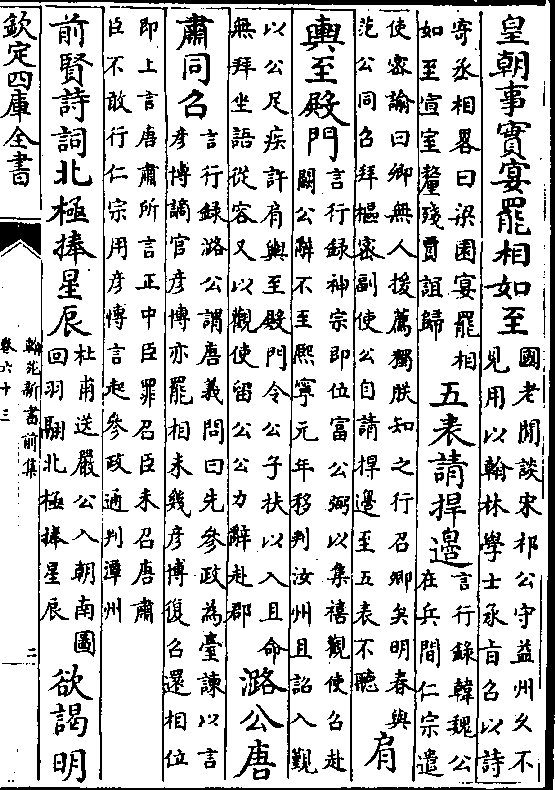 皇朝事實宴罷相如至
國老閒談宋祁公守益州久不
見用以翰林學士承旨召以詩
寄丞相畧曰梁園宴罷相
如至宣室釐殘賈誼歸
五表請捍邉
言行錄韓魏公
在兵間仁宗遣
使密諭曰卿無人援薦獨朕知之行召卿矣明春與
范公同召拜樞密副使公自請捍邉至五表不聽
肩
輿至殿門
言行録神宗即位富公弼以集禧觀使召赴
闕公辭不至熙寧元年移判汝州且詔入覲
以公足疾許肩輿至殿門令公子扶以入且命
無拜坐語從容又以觀使留公公力辭赴郡
潞公唐
肅同召
言行録潞公謂唐義問曰先參政為臺諫以言
彦博謫官彦博亦罷相未幾彦博復召還相位
即上言唐肅所言正中臣罪召臣未召唐肅
臣不敢行仁宗用彦博言起參政通判潭州
前賢詩詞北極捧星辰
杜甫送嚴公入朝南圖
回羽翮北極捧星辰
欲謁明
欽定四庫全書
翰苑新書前集
卷六十三
二